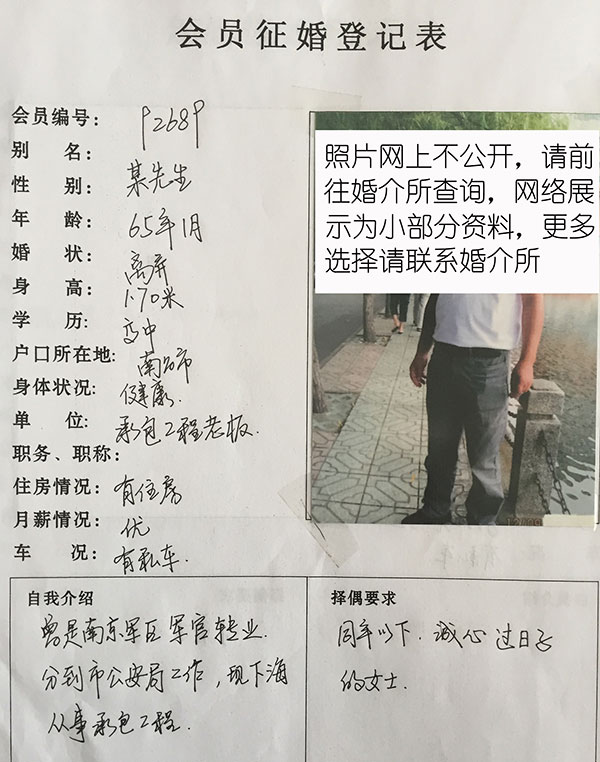 会员征婚登记表
会员编号: 92689
别 名:
性 别: 某先生
年 龄: 65年1月
婚 状: 离异
身 高: 1.70米
学 历: 高中
户口所在地: 南昌市
身体状况: 健康.
单 位: 承包工程老板.
职务、职称:
住房情况: 有住房
月薪情况: 优
车 况: 有私车.
照片网上不公开，请前
往婚介所查询，网络展
示为小部分资料，更多
选择请联系婚介所
自我介绍
曾是南京军区军官转业.
分到市公安局工作，现下海
从事承包工程.
择偶要求
同年以下. 诚心过日子
的女士.